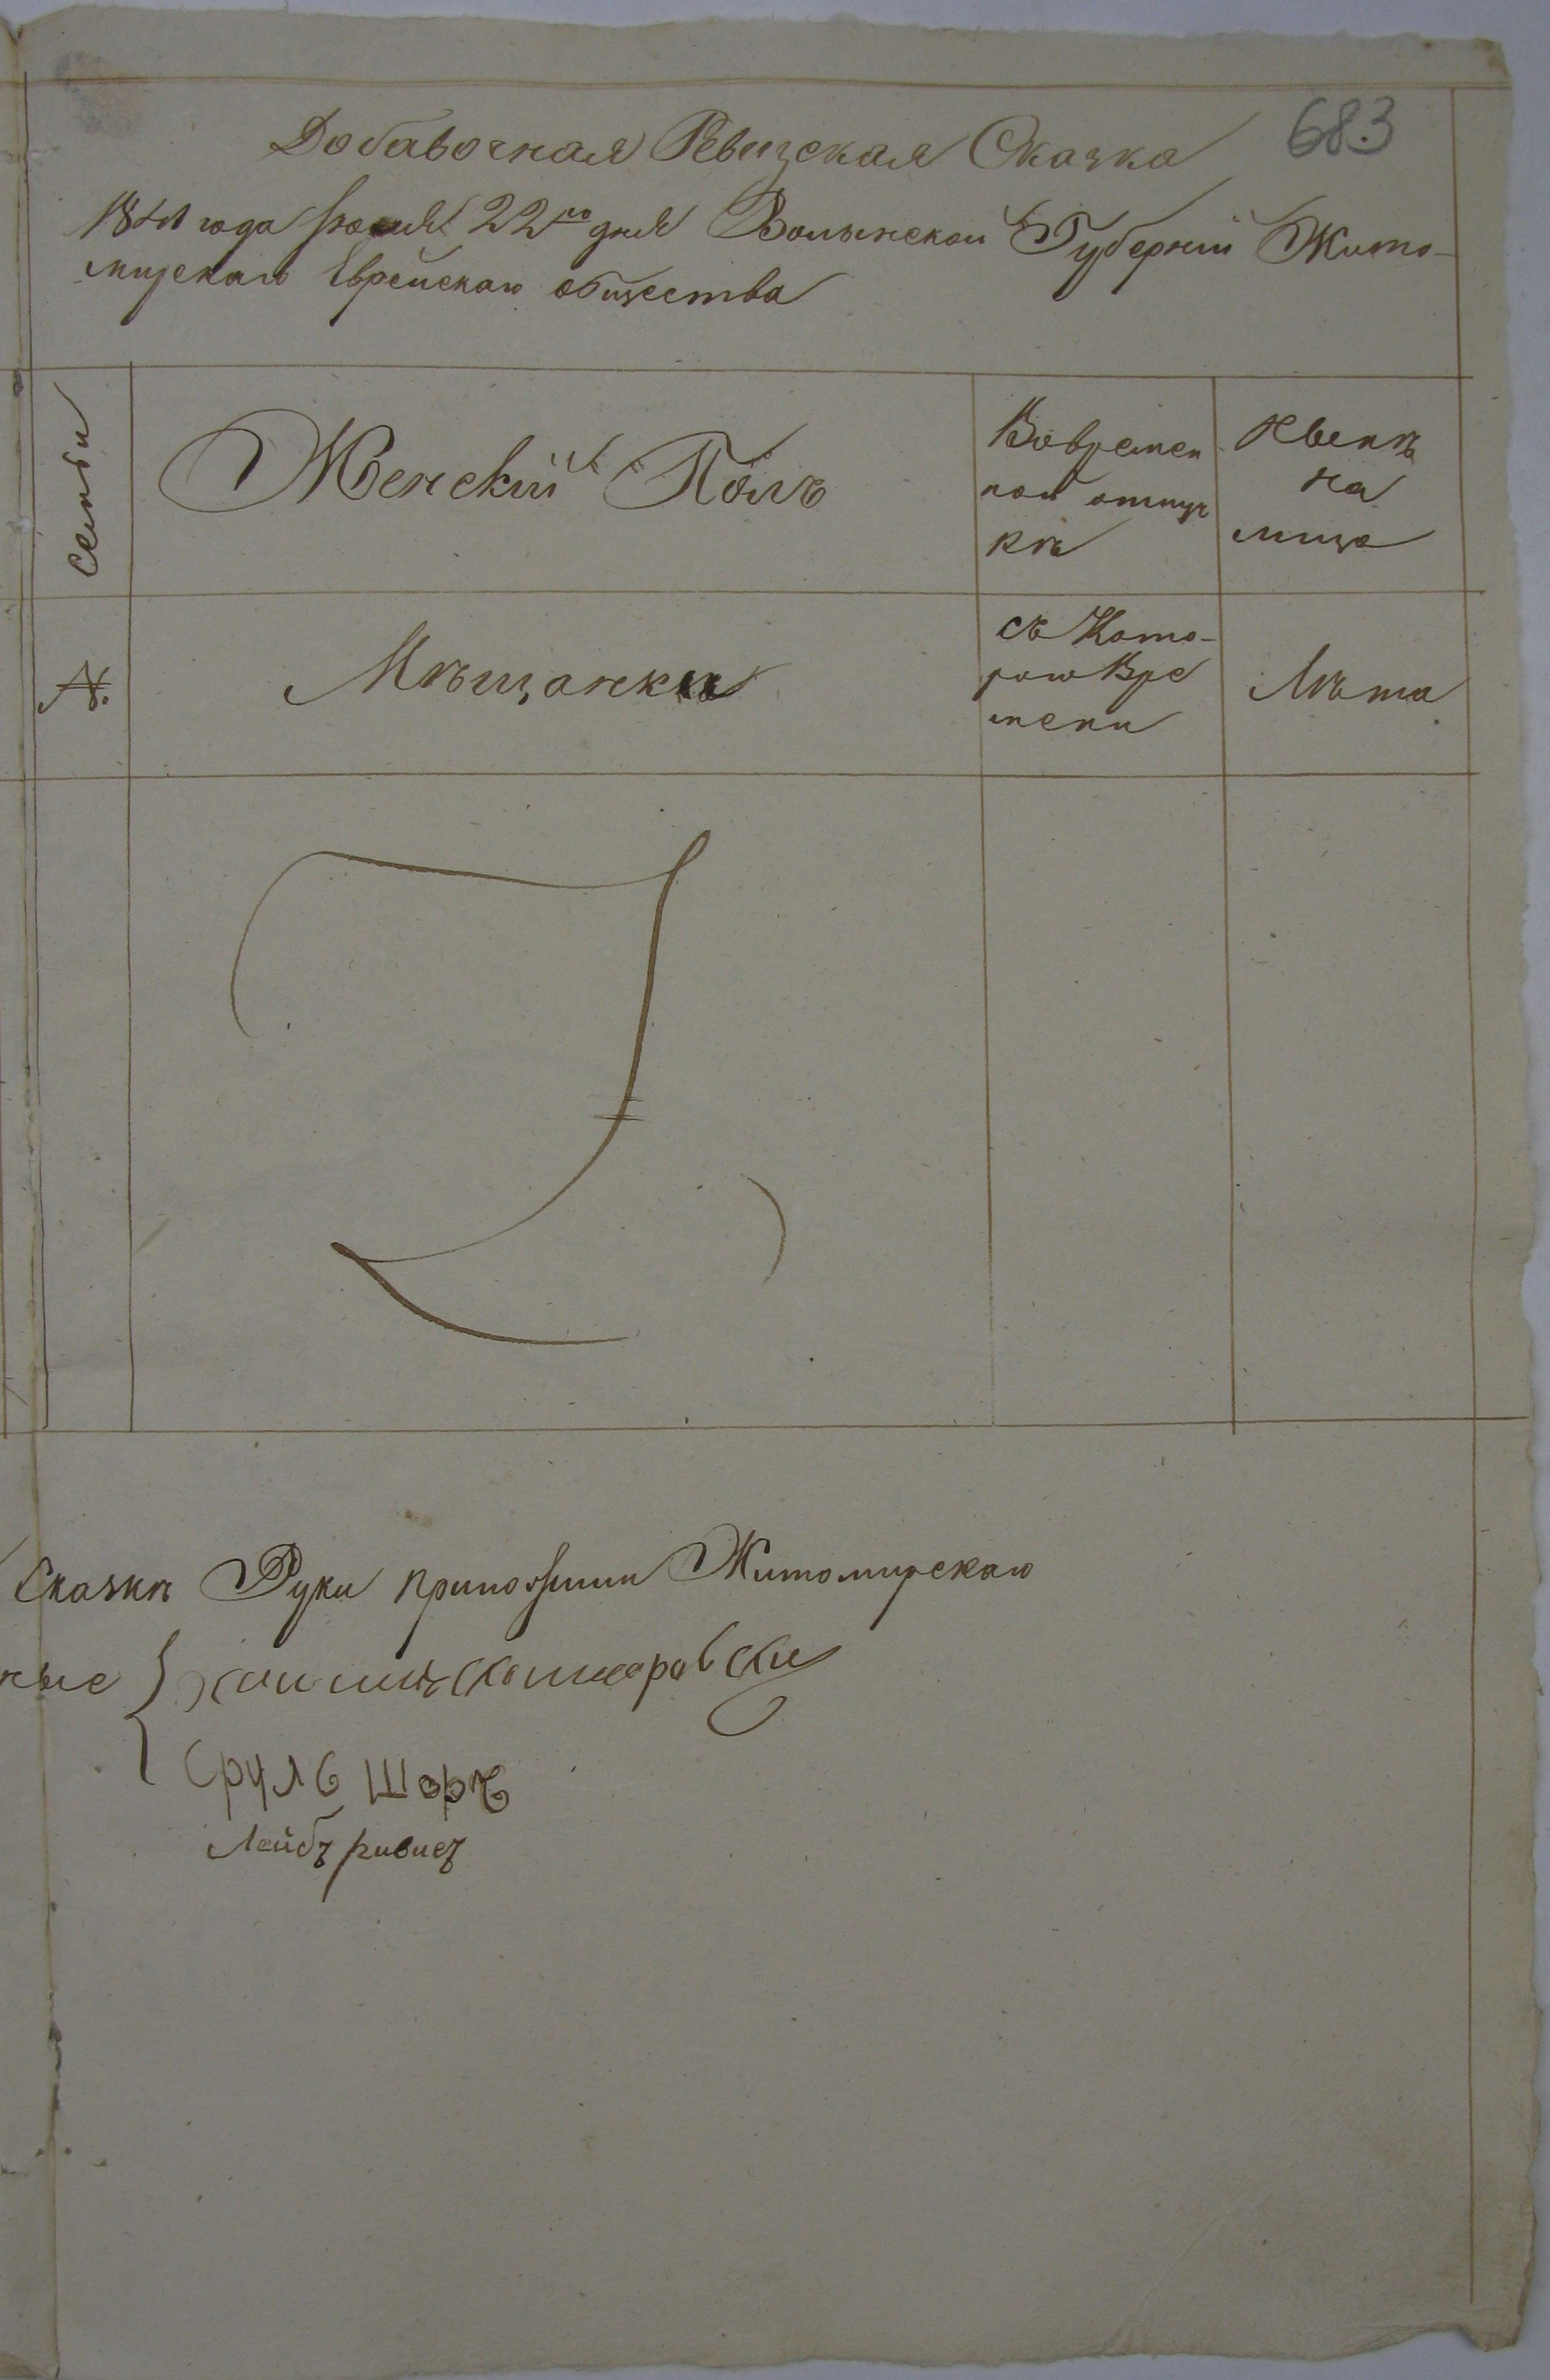 683
Добавочная Ревизская Сказка
года 22го дня Волынской Губерніи Жито-
мирскаго Еврейскаго общества
Семьи
Женскій Полъ
Во времен
ной отлуч
кѣ
Нынѣ
на
лицо
№
Мѣщанки
съ Кото-
раго Вре
мени
Лѣта
Сказкѣ Руки приложили Житомирскаго
ные
Сруль Шоръ
Лейбъ